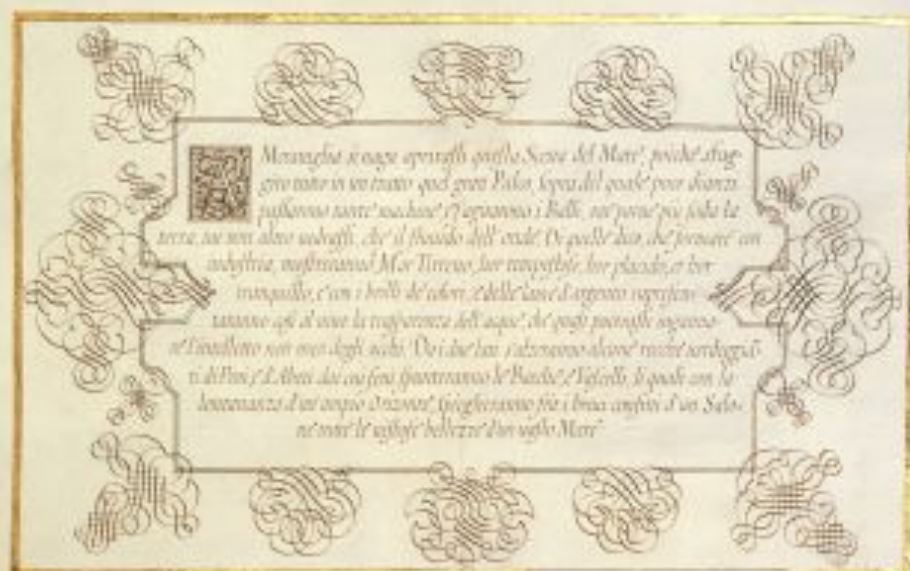 Meraviglia si maga aprirassi questa Scena del Mare, poiche sfug-
gito tutto in un tratto quel gran Palco, sopra del quale poco dianzi
passarono tante machine, e i Balli, non più soda la
terra, ma non altro vedrassi, che il fluuido dell'onde. Di quelle dico, che formate con
industria, mostreranno Mar Tirreno, hor tempestoso, hor placido, et hor
tranquillo, e con i brilli de colori, e delle lame d'argento rapresen-
taranno così al vivo la trasparenza dell'acque, che quasi potrassi inganna-
re l'intelletto non men degli occhi. Da i due lati s'alzeranno alcune rocche verdeggiã
ti di Pini, e d'Abeti dai cui seni spunteranno le Barche, e Vascelli, li quali con la
lontananza d'un ampio Orizonte, spiegheranno frà i brevi confini d'un Salo-
ne tutte le vistose bellezze d'un vasto Mare